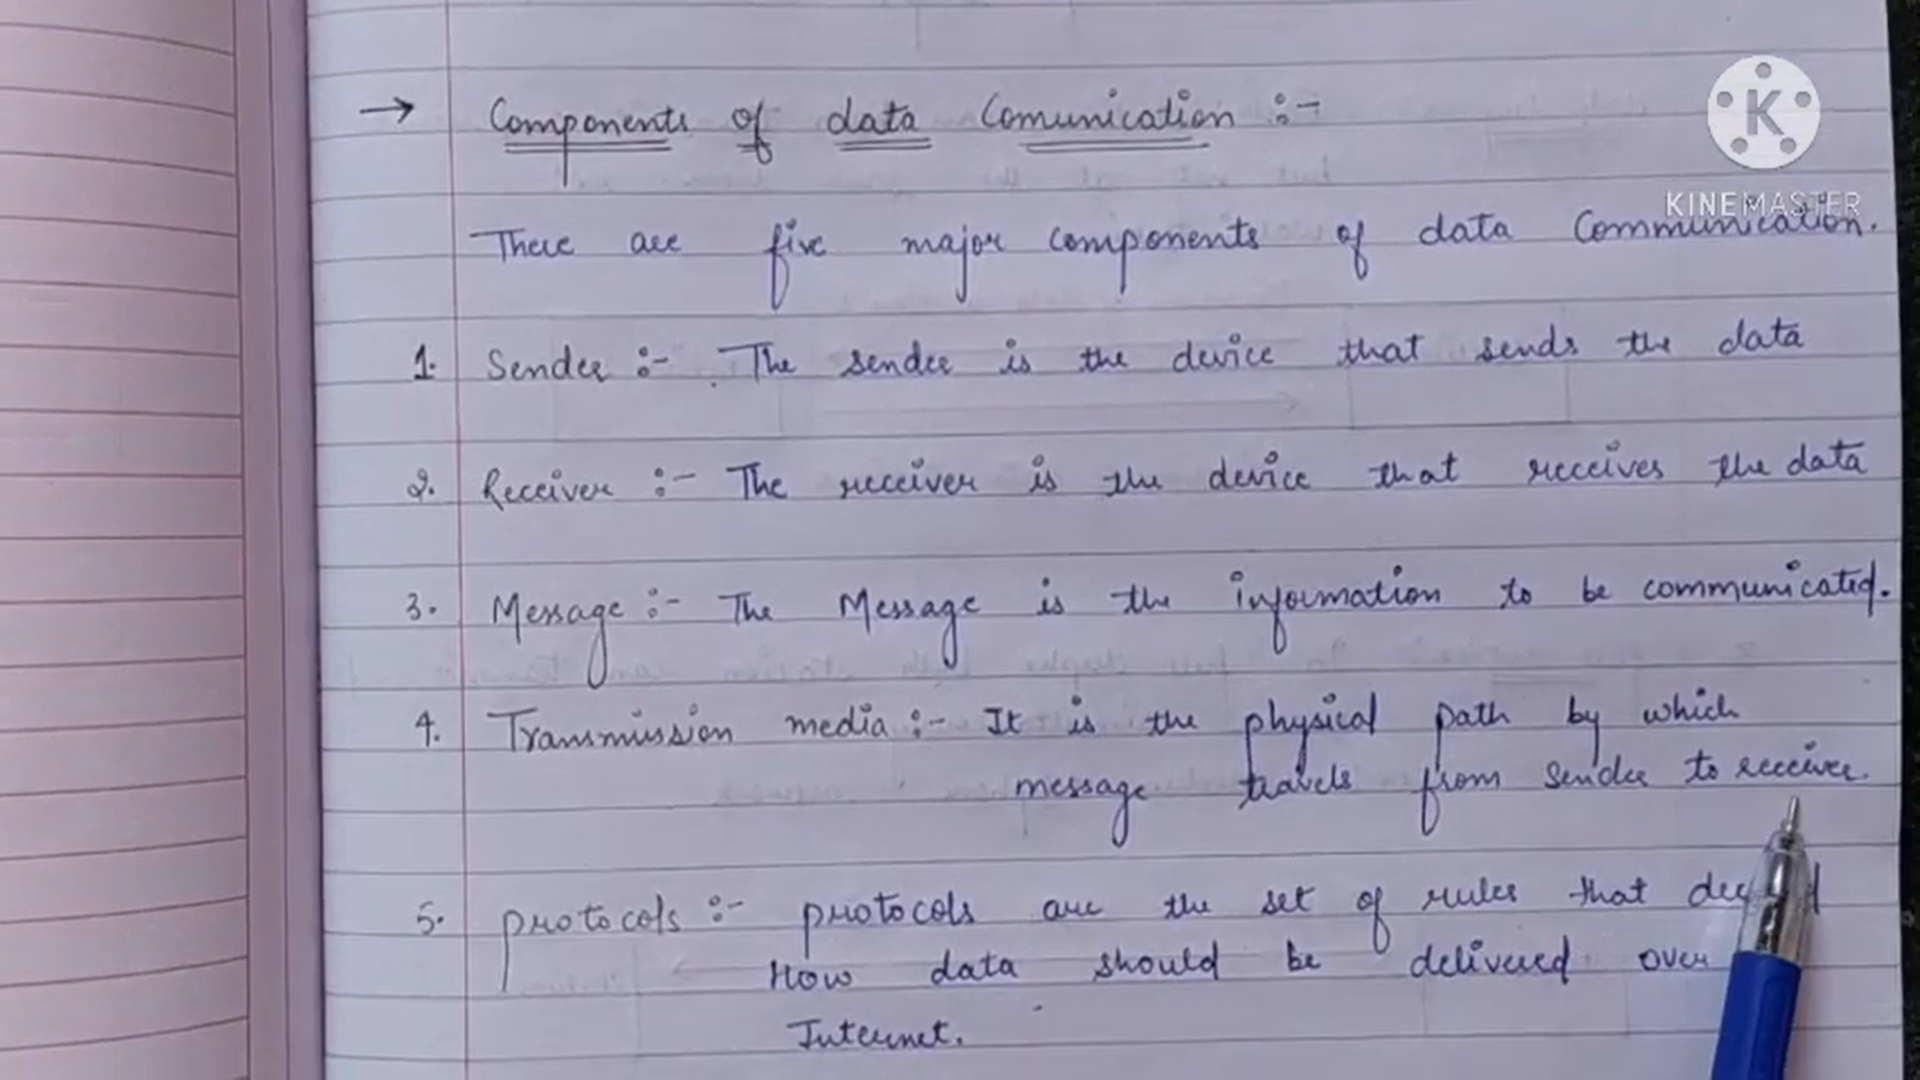 → Components of data Comunication :-
K
KINEMASTER
There are five major components of data Communication.
1. Sender :- The sender is the device that sends the data
2. Receiver :- The receiver is the device that receives the data
3. Message :- The Message is the information to be communicated.
4. Transmission media :- It is the physical path by which
message travels from sender to receiver.
5. protocols :- protocols are the set of rules that
How data should be delivered over
Internet.